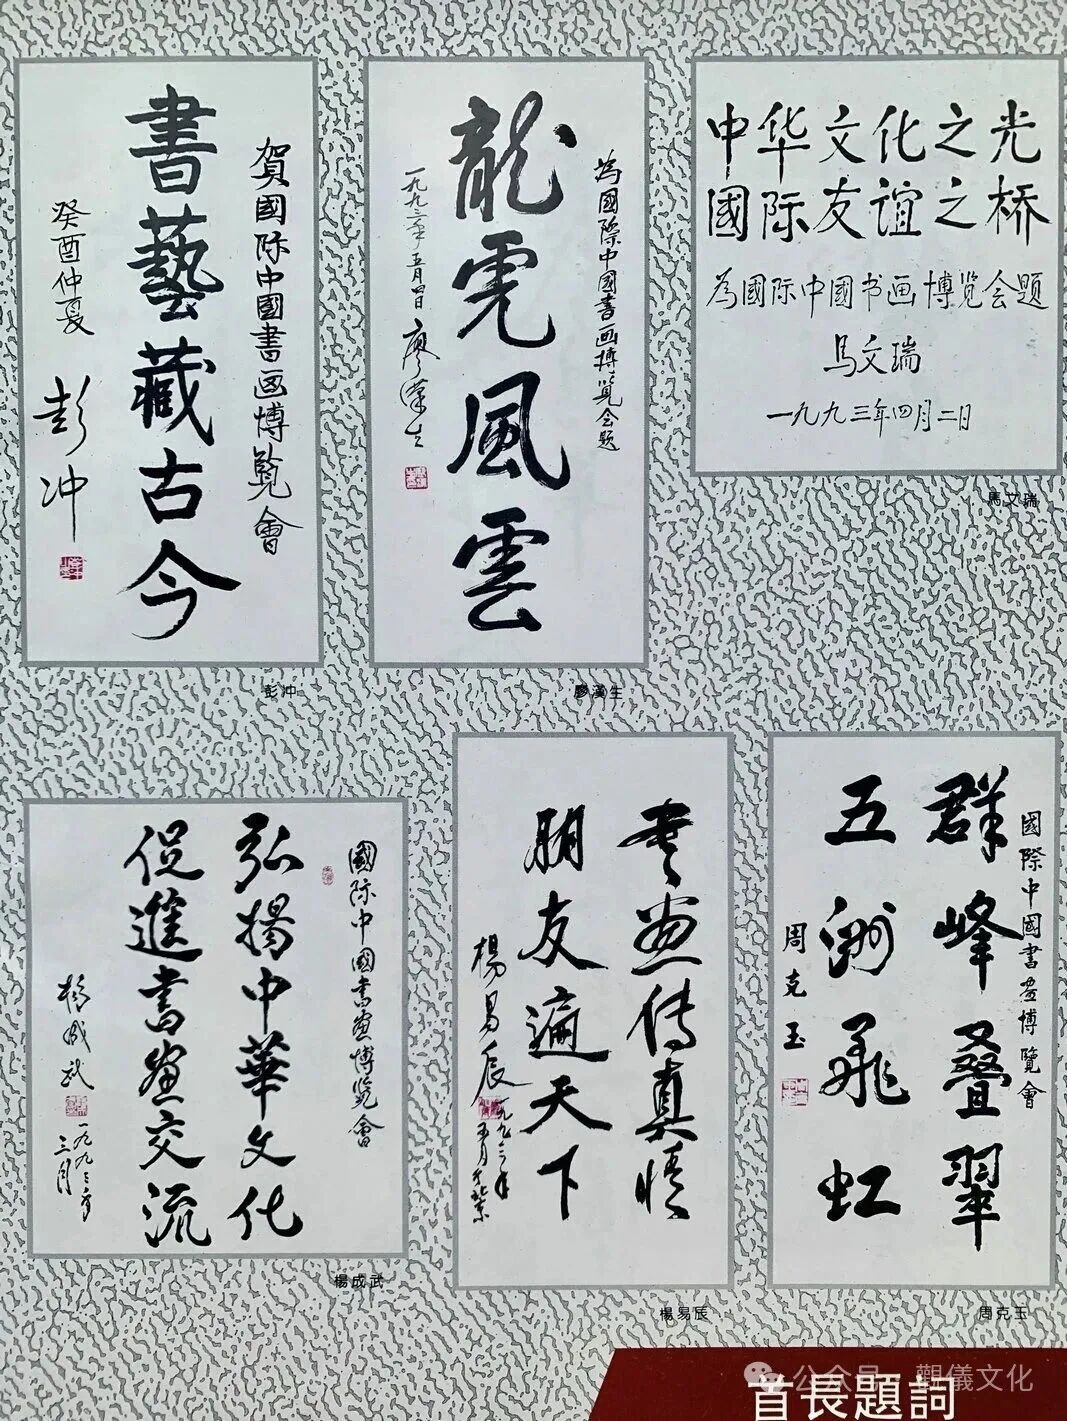 賀國际中國書画博覧會
書藝藏古今
癸酉仲夏
彭冲
彭冲
為國際中國書画博览会题
龍虎風雲
廖漢生
廖漢生
中华文化之光
國际友谊之桥
為國际中國书画博览会题
马文瑞
一九九三年四月二日
馬文瑞
國际中國書畫博覽會
弘揚中華文化
促進書畫交流
楊成武
一九九三年
三月
楊成武
書畫传真情
朋友遍天下
楊易辰
一九九三年
五月於北京
楊易辰
國際中國書畫博覽會
群峰叠翠
五洲飛虹
周克玉
周克玉
首長題詞
公众号 觀儀文化